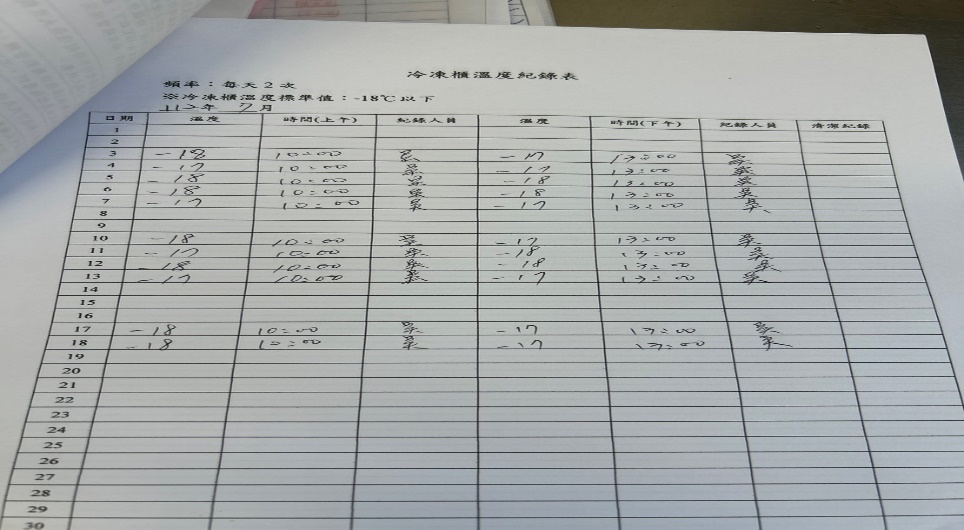 冷凍櫃溫度紀錄表
頻率：每天2次
※冷凍櫃溫度標準值：-18℃以下
112年 7月
日期 溫度 時間(上午) 紀錄人員 溫度 時間(下午) 紀錄人員 清潔紀錄
1
2
3 -18 10:00 -17 13:00
4 -17 10:00 -17 13:00
5 -18 10:00 -18 13:00
6 -18 10:00 -18 13:00
7 -17 10:00 -17 13:00
8
9
10 -18 10:00 -17 13:00
11 -17 10:00 -18 13:00
12 -18 10:00 -18 13:00
13 -17 10:00 -17 13:00
14
15
16
17 -18 10:00 -17 13:00
18 -18 10:00 -17 13:00
19
20
21
22
23
24
25
26
27
28
29
30